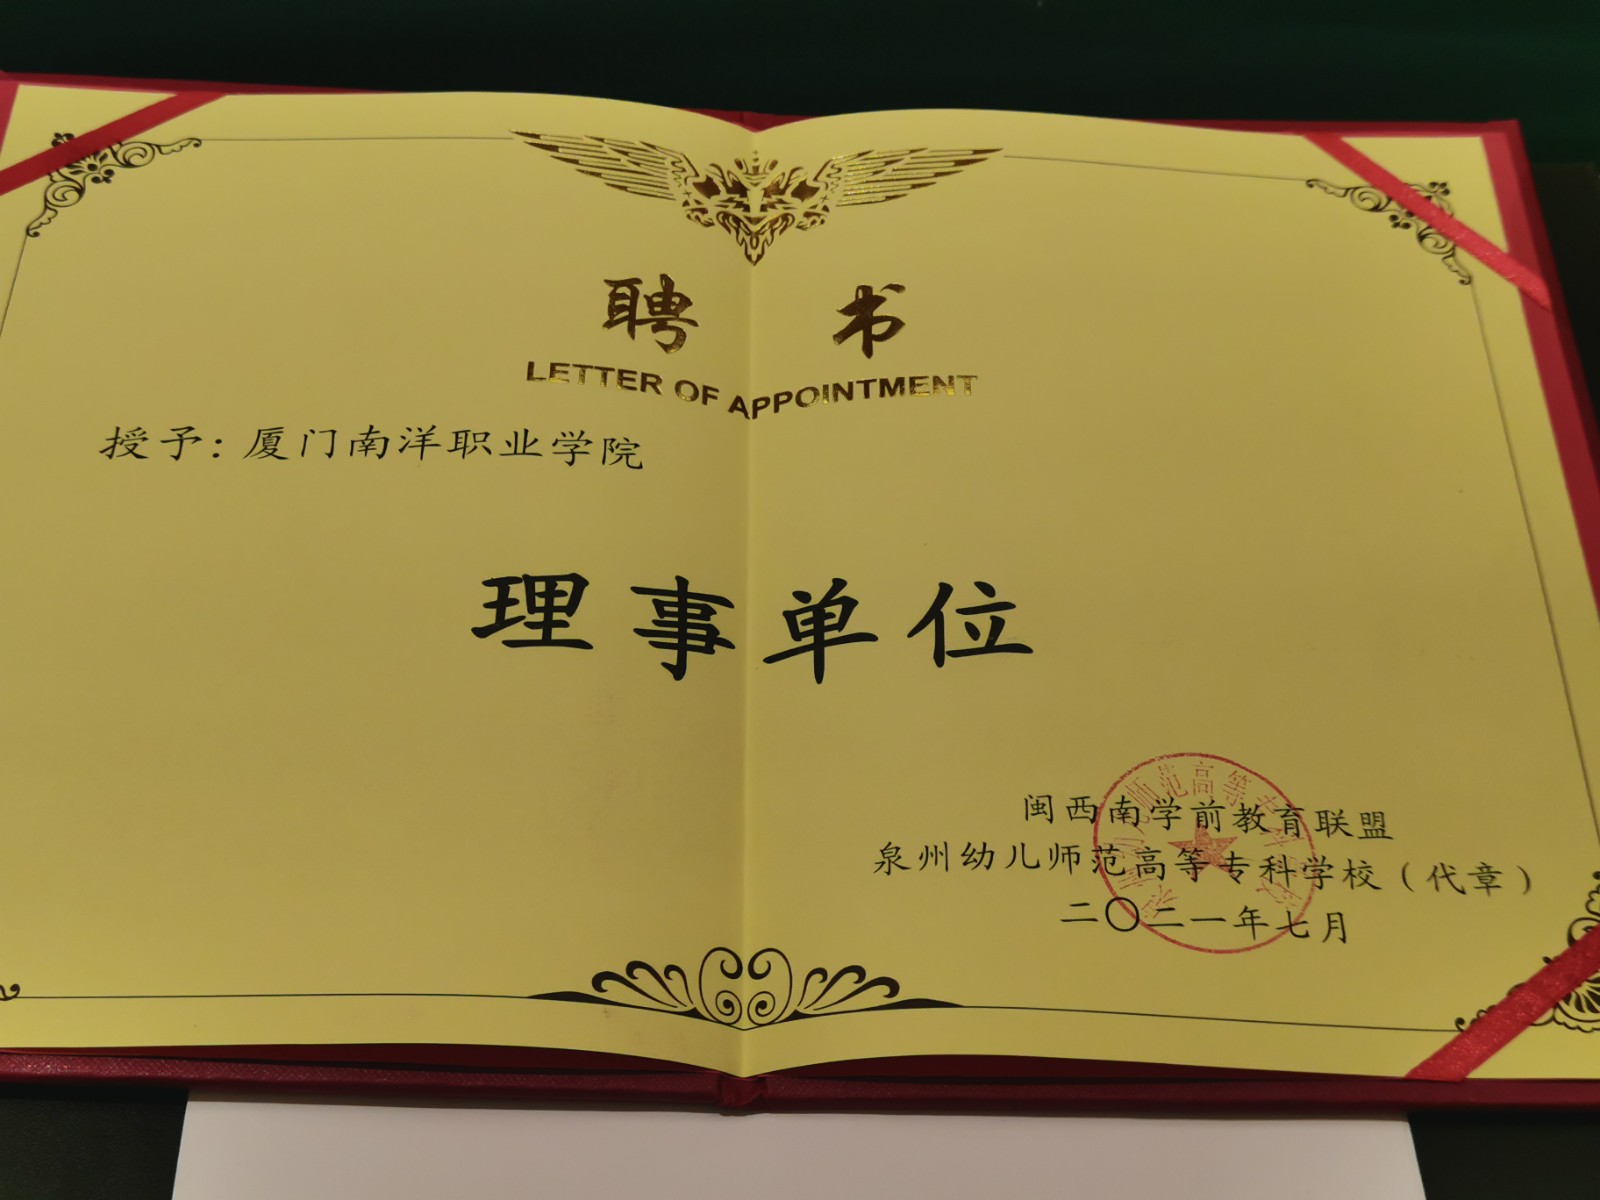 聘 书
LETTER OF APPOINTMENT
授予：厦门南洋职业学院
理事单位
闽西南学前教育联盟
泉州幼儿师范高等专科学校（代章）
二〇二一年七月
泉州幼儿师范高等专科学校